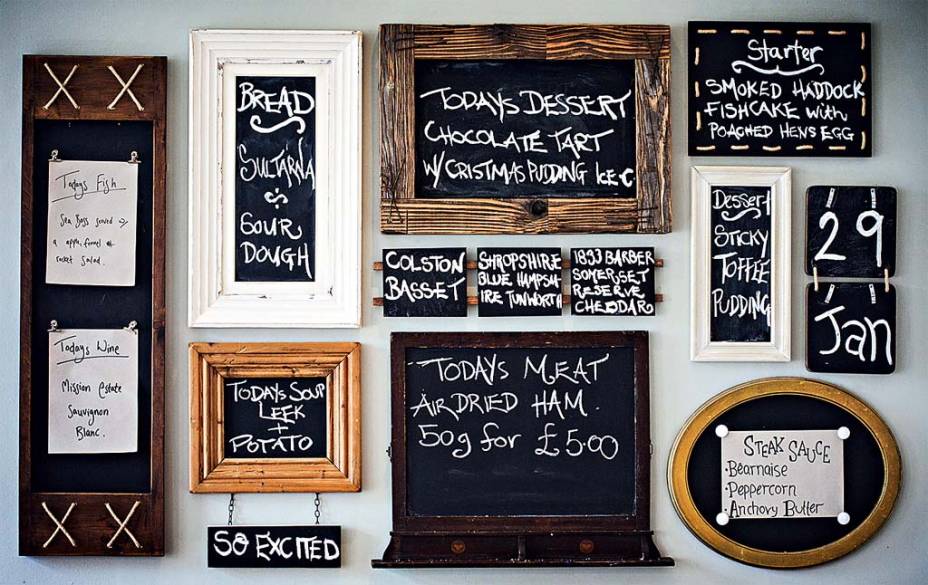 Todays Fish
Sea Bass served
a apple, fennel +
rocket salad.
Todays Wine
Mission estate
Sauvignon
Blanc.
BREAD
SULTANA
SOUR
DOUGH
TODAYS SOUP
LEEK
+
POTATO
SO EXCITED
TODAYS DESSERT
CHOCOLATE TART
W/ CRISTMAS PUDDING ICE C
COLSTON
BASSET
SHROPSHIRE
BLUE HAMPSH
IRE TUNWORTH
1833 BARBER
SOMERSET
RESERVE
CHEDDAR
TODAYS MEAT
AIR DRIED HAM.
50g for £5.00
Starter
SMOKED HADDOCK
FISHCAKE with
POACHED HENS EGG
Dessert
STICKY
TOFFEE
PUDDING
29
Jan
STEAK SAUCE
·Bearnaise
·Peppercorn
·Anchovy Butter